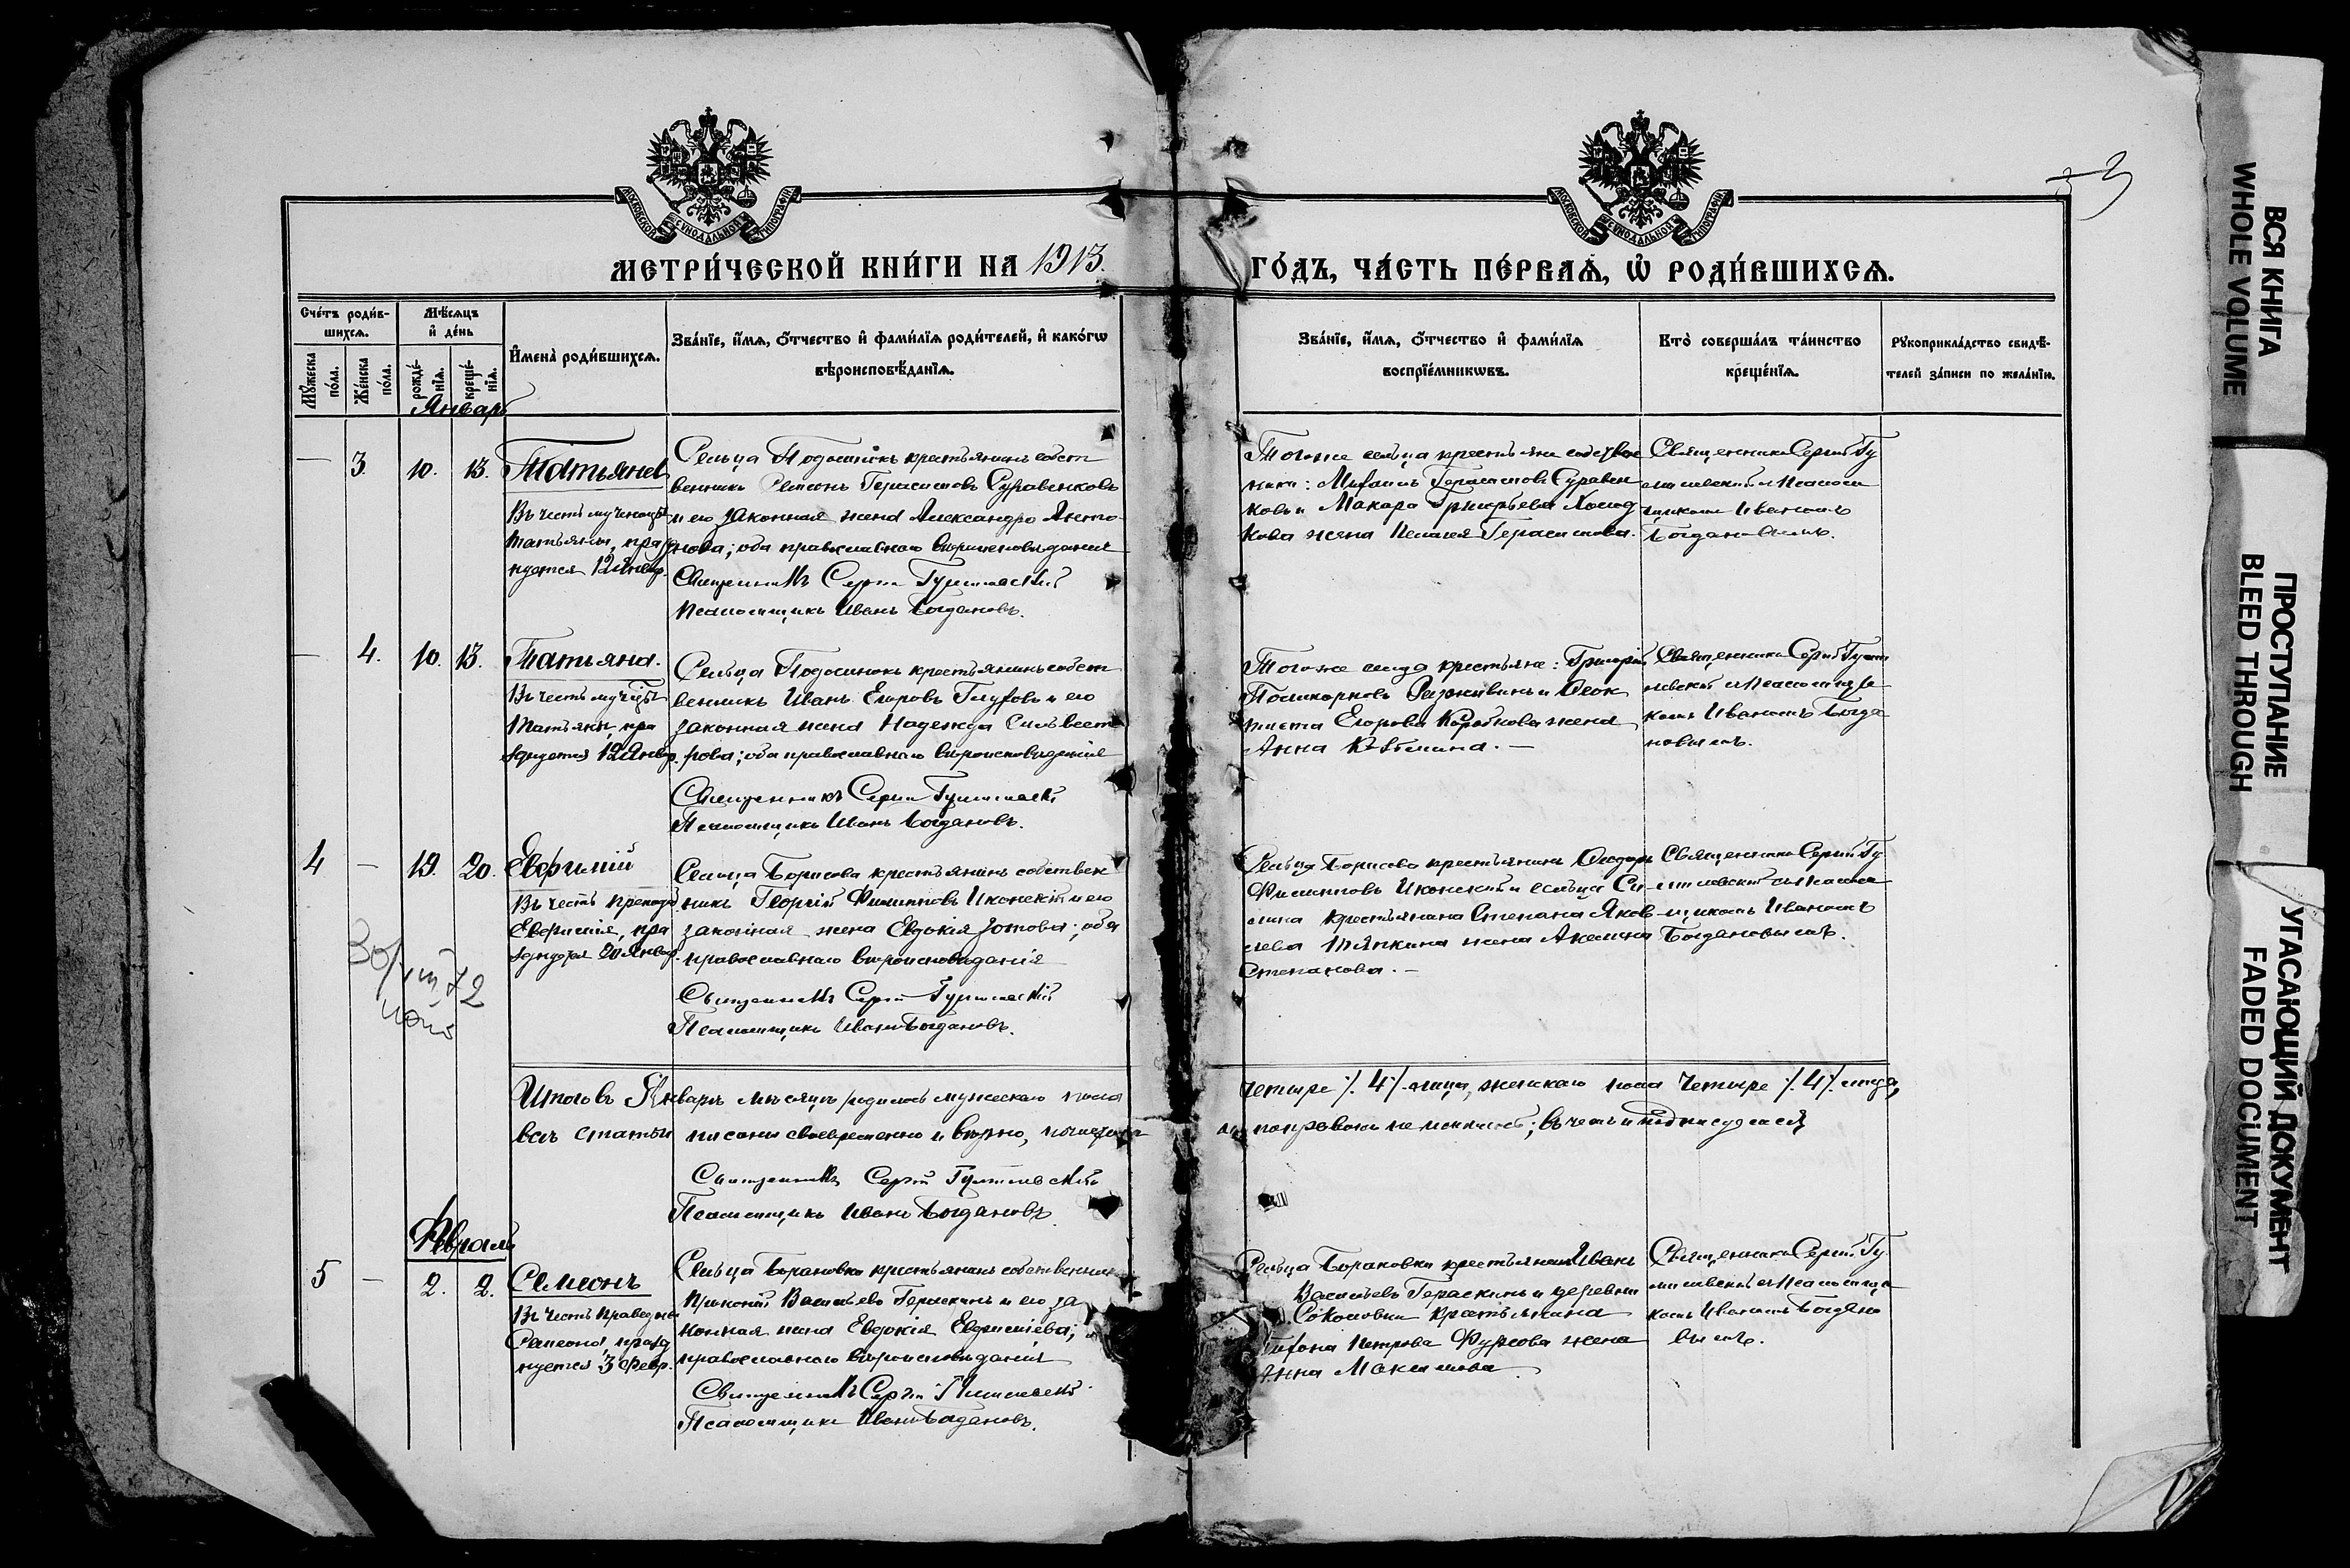 МОСКОВСКОЙ СѴНОДАЛЬНОЙ ТИПОГРАФІИ
МОСКОВСКОЙ СѴНОДАЛЬНОЙ ТИПОГРАФІИ
МЕТРИ́ЧЕСКОЙ КНИ́ГИ НА 1913.
ГО́ДЪ, ЧА́СТЬ ПЕ́РВАѦ, Ѡ РОДИ́ВШИХСѦ.
Сче́тъ роди́в-
шихсѧ.
Мѣ́сѧцъ
и҆ де́нь
Мꙋ́жеска
по́ла.
Же́нска
по́ла.
рожде́-
нїѧ.
креще́-
нїѧ.
И҆мена̀ роди́вшихсѧ.
Зва́нїе, и҆́мѧ, ѻ҆́тчество и҆ фами́лїѧ роди́телей, и҆ како́гѡ
вѣроисповѣ́данїѧ.
Зва́нїе, и҆́мѧ, ѻ҆́тчество и҆ фами́лїѧ
воспрїе́мникѡвъ.
Кто̀ соверша́лъ та́инство
креще́нїѧ.
Рꙋкоприкла́дство свидѣ́-
телей за́писи по жела́нїю.
Январь
— 3 10. 13. Татьяна
Въ честь мученицы
Татьяны, праз
нуется 12 Январ.
Сельца Подосинокъ крестьянинъ собст
венникъ Семеонъ Герасимовъ Суравенковъ
и его законная жена Александра Анто
нова; оба православнаго вѣроисповѣданія
Священникъ Сергій
Псаломщикъ Иванъ Богдановъ.
Тогоже сельца крестьяне собствен
ники: Михаилъ Герасимовъ Суравен
ковъ и Макара Григорьева
кова жена Пелагея Герасимова.
Священникъ Сергій Гу
милевскій съ Псалом
щикомъ Иваномъ
Богдановымъ.
— 4. 10. 13. Татьяна.
Въ честь муч-цы
Татьяны, пра
зднуется 12 Январ.
Сельца Подосинокъ крестьянинъ собст
венникъ Иванъ Егоровъ Глуховъ и его
законная жена Надежда Сильвест
рова; оба православнаго вѣроисповѣданія
Священникъ Сергій
Псаломщикъ Иванъ Богдановъ.
Тогоже сельца крестьяне: Григорій
Поликарповъ и Ѳеок
тиста Егорова жена
Анна
Священникъ Сергій Гуми
левскій съ Псаломщи
комъ Иваномъ Богда
новымъ.
4 — 19. 20. Евфимій
Въ честь преподоб.
Евфимія, пра
зднуется 20 Январ.
Сельца Борисова крестьянинъ собствен
никъ Георгій Филипповъ Иконскій и его
законная жена Евдокія Зотова; оба
православнаго вѣроисповѣданія
Священникъ Сергій
Псаломщикъ Иванъ Богдановъ.
Сельца Борисова крестьянинъ Ѳеодоръ
Филипповъ Иконскій и сельца Си
крестьянина Степана Яков
лева Тяпкина жена Акелина
Степанова. —
Священникъ Сергій Гу
милевскій съ Псалом
щикомъ Иваномъ
Богдановымъ.
Итого въ Январѣ мѣсяцѣ родилось мужескаго пола четыре /.4/. лица, женскаго пола четыре /.4/. лица,
всѣ статьи писаны своевременно и вѣрно, въ чемъ и подписуемся
Священникъ Сергій Гумилевскій
Псаломщикъ Иванъ Богдановъ
Февраль
5 — 2. 2. Семеонъ
Въ честь праведнаго
Семеона, празд
нуется 3 Февр.
Сельца Борановки крестьянинъ собственникъ
Прокопій Васильевъ Гераскинъ и его за
конная жена Евдокія Евфиміева;
православнаго вѣроисповѣданія
Священникъ Сергій
Псаломщикъ Иванъ Богдановъ.
Сельца Борановки крестьянинъ Иванъ
Васильевъ Гераскинъ и деревни
Соколовки крестьянина
Тихона Петрова Фурсова жена
Анна Максимова.
Священникъ Сергій Гу
милевскій съ Псаломщи
комъ Иваномъ Богдано
вымъ.
ВСЯ КНИГА
WHOLE VOLUME
ПРОСТУПАНИЕ
BLEED THROUGH
УГАСАЮЩИЙ ДОКУМЕНТ
FADED DOCUMENT